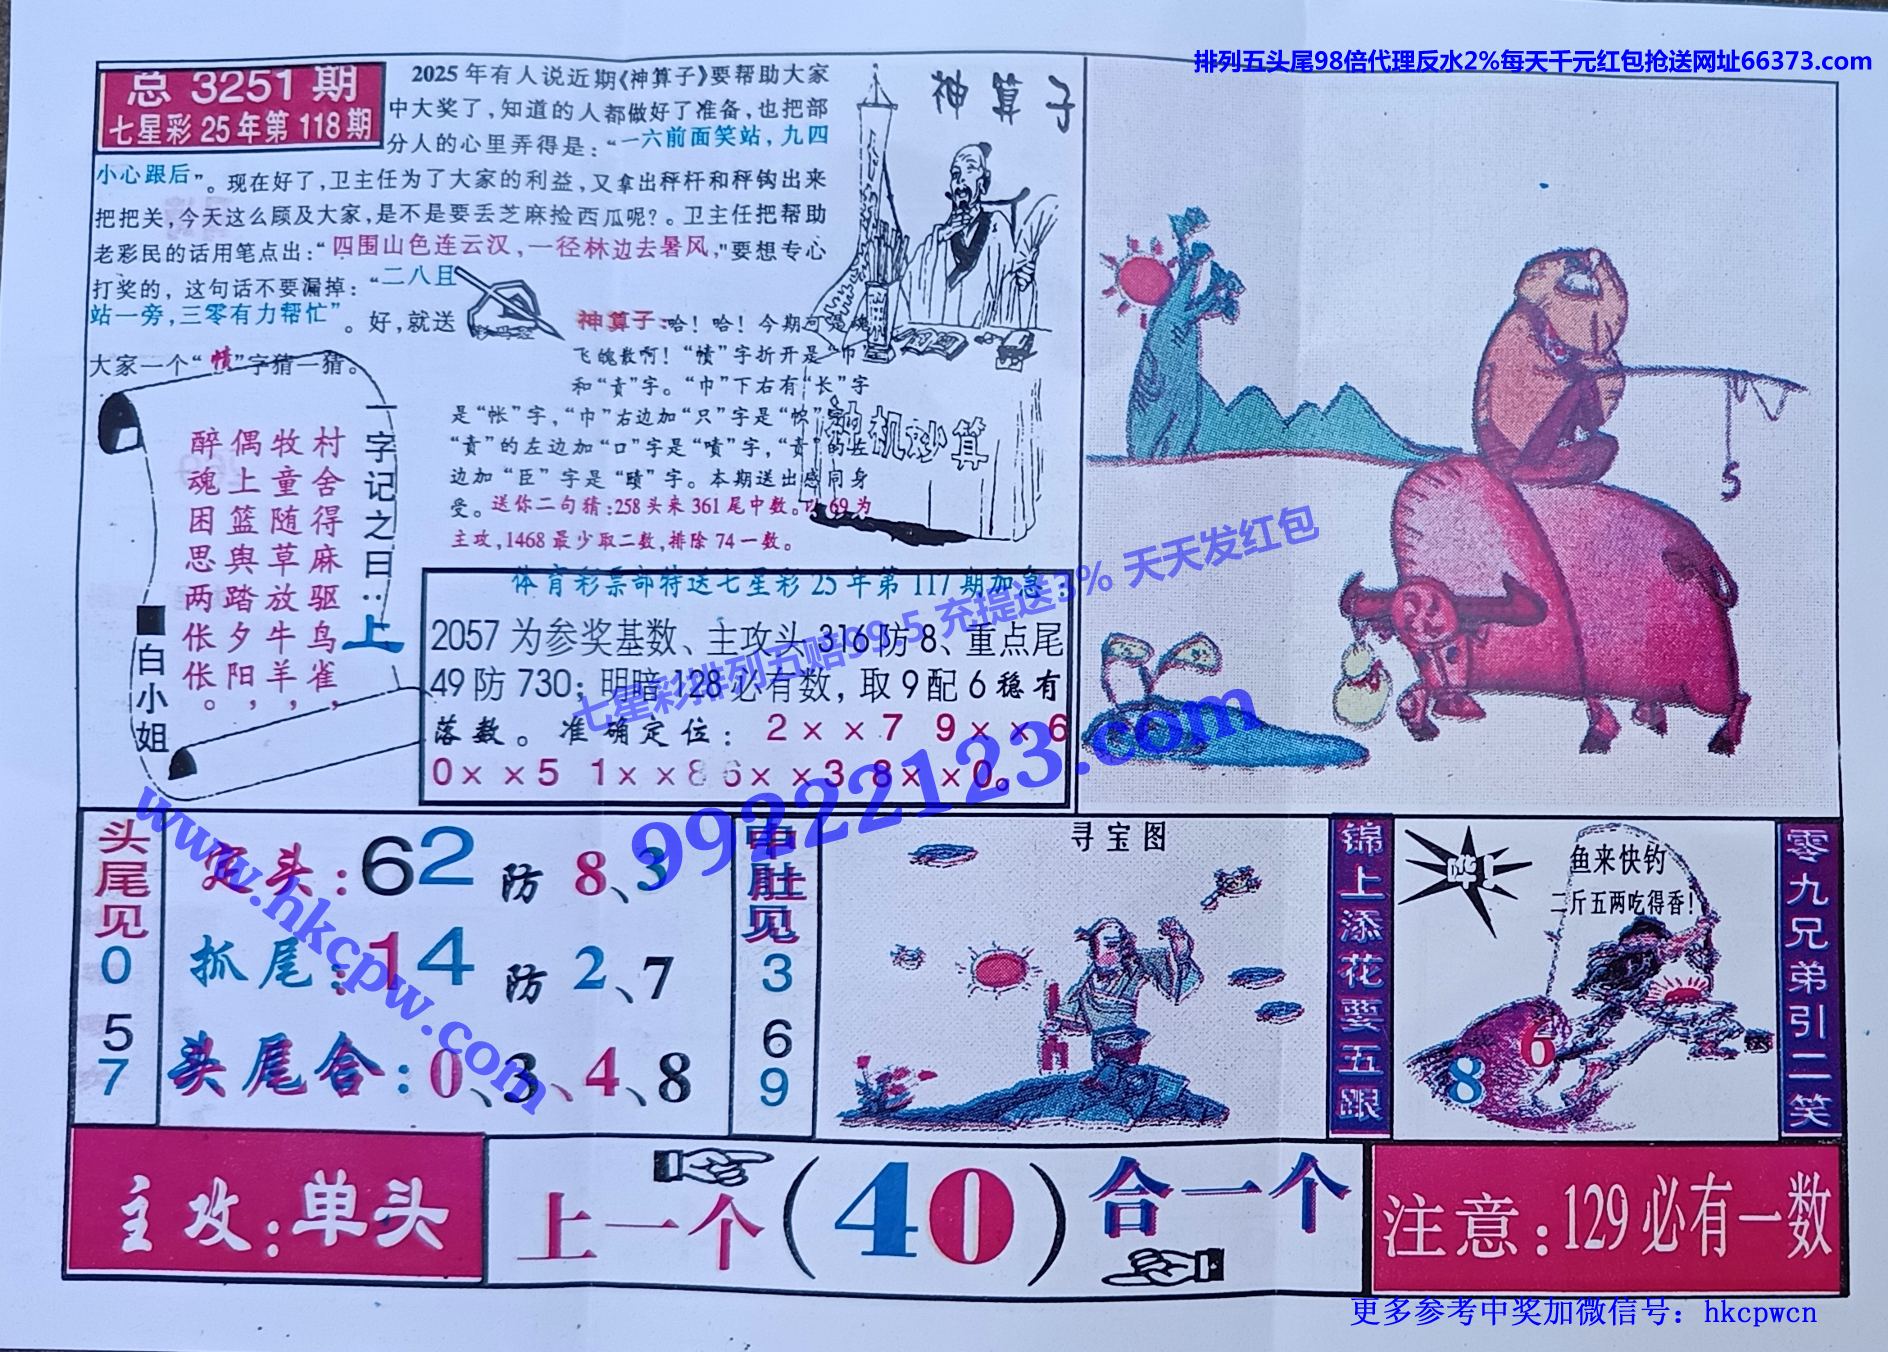 排列五头尾98倍代理反水2%每天千元红包抢送网址66373.com
总 3251 期
七星彩 25年第118期
2025年有人说近期《神算子》要帮助大家
中大奖了，知道的人都做好了准备，也把部
分人的心里弄得是：“一六前面笑站，九四
小心跟后”。现在好了，卫主任为了大家的利益，又拿出秤杆和秤钩出来
把把关，今天这么顾及大家，是不是要丢芝麻捡西瓜呢？。卫主任把帮助
老彩民的话用笔点出：“四围山色连云汉，一径林边去暑风，”要想专心
打奖的，这句话不要漏掉：“二八且
站一旁，三零有力帮忙”。好，就送
大家一个“愤”字猜一猜。
神算子
神算子：哈！哈！今期可是魂
飞魄散啊！“幩”字折开是“巾”
和“贲”字。“巾”下右有“长”字
是“帐”字，“巾”右边加“只”字是“帜”字
“贲”的左边加“口”字是“喷”字，“贲”的左
边加“臣”字是“賾”字。本期送出感同身
受。送你二句猜：258头来361尾中数。以69为
主攻，1468最少取二数，排除74一数。
神机妙算
一字记之曰：上
村舍得麻驱鸟雀，
牧童随草放牛羊，
偶上篮舆踏夕阳，
醉魂困思两伥伥。
白小姐
体育彩票部特送七星彩25年第117期加急：
2057为参奖基数、主攻头316防8、重点尾
49防730；明暗128必有数，取9配6稳有
落数。准确定位：2××7 9××6
0××5 1××8 6××3 8××0。
七星彩排列五赔99.5 充提送3% 天天发红包
99222123.com
www.hkcpw.com
5
头尾见057
定头：62防8、3
抓尾：14防2、7
头尾合：0、3、4、8
中肚见369
寻宝图
锦上添花要五跟
鱼来快钓
二斤五两吃得香！
8
6
零九兄弟引二笑
主攻：单头
上一个（40）合一个
注意：129必有一数
更多参考中奖加微信号：hkcpwcn